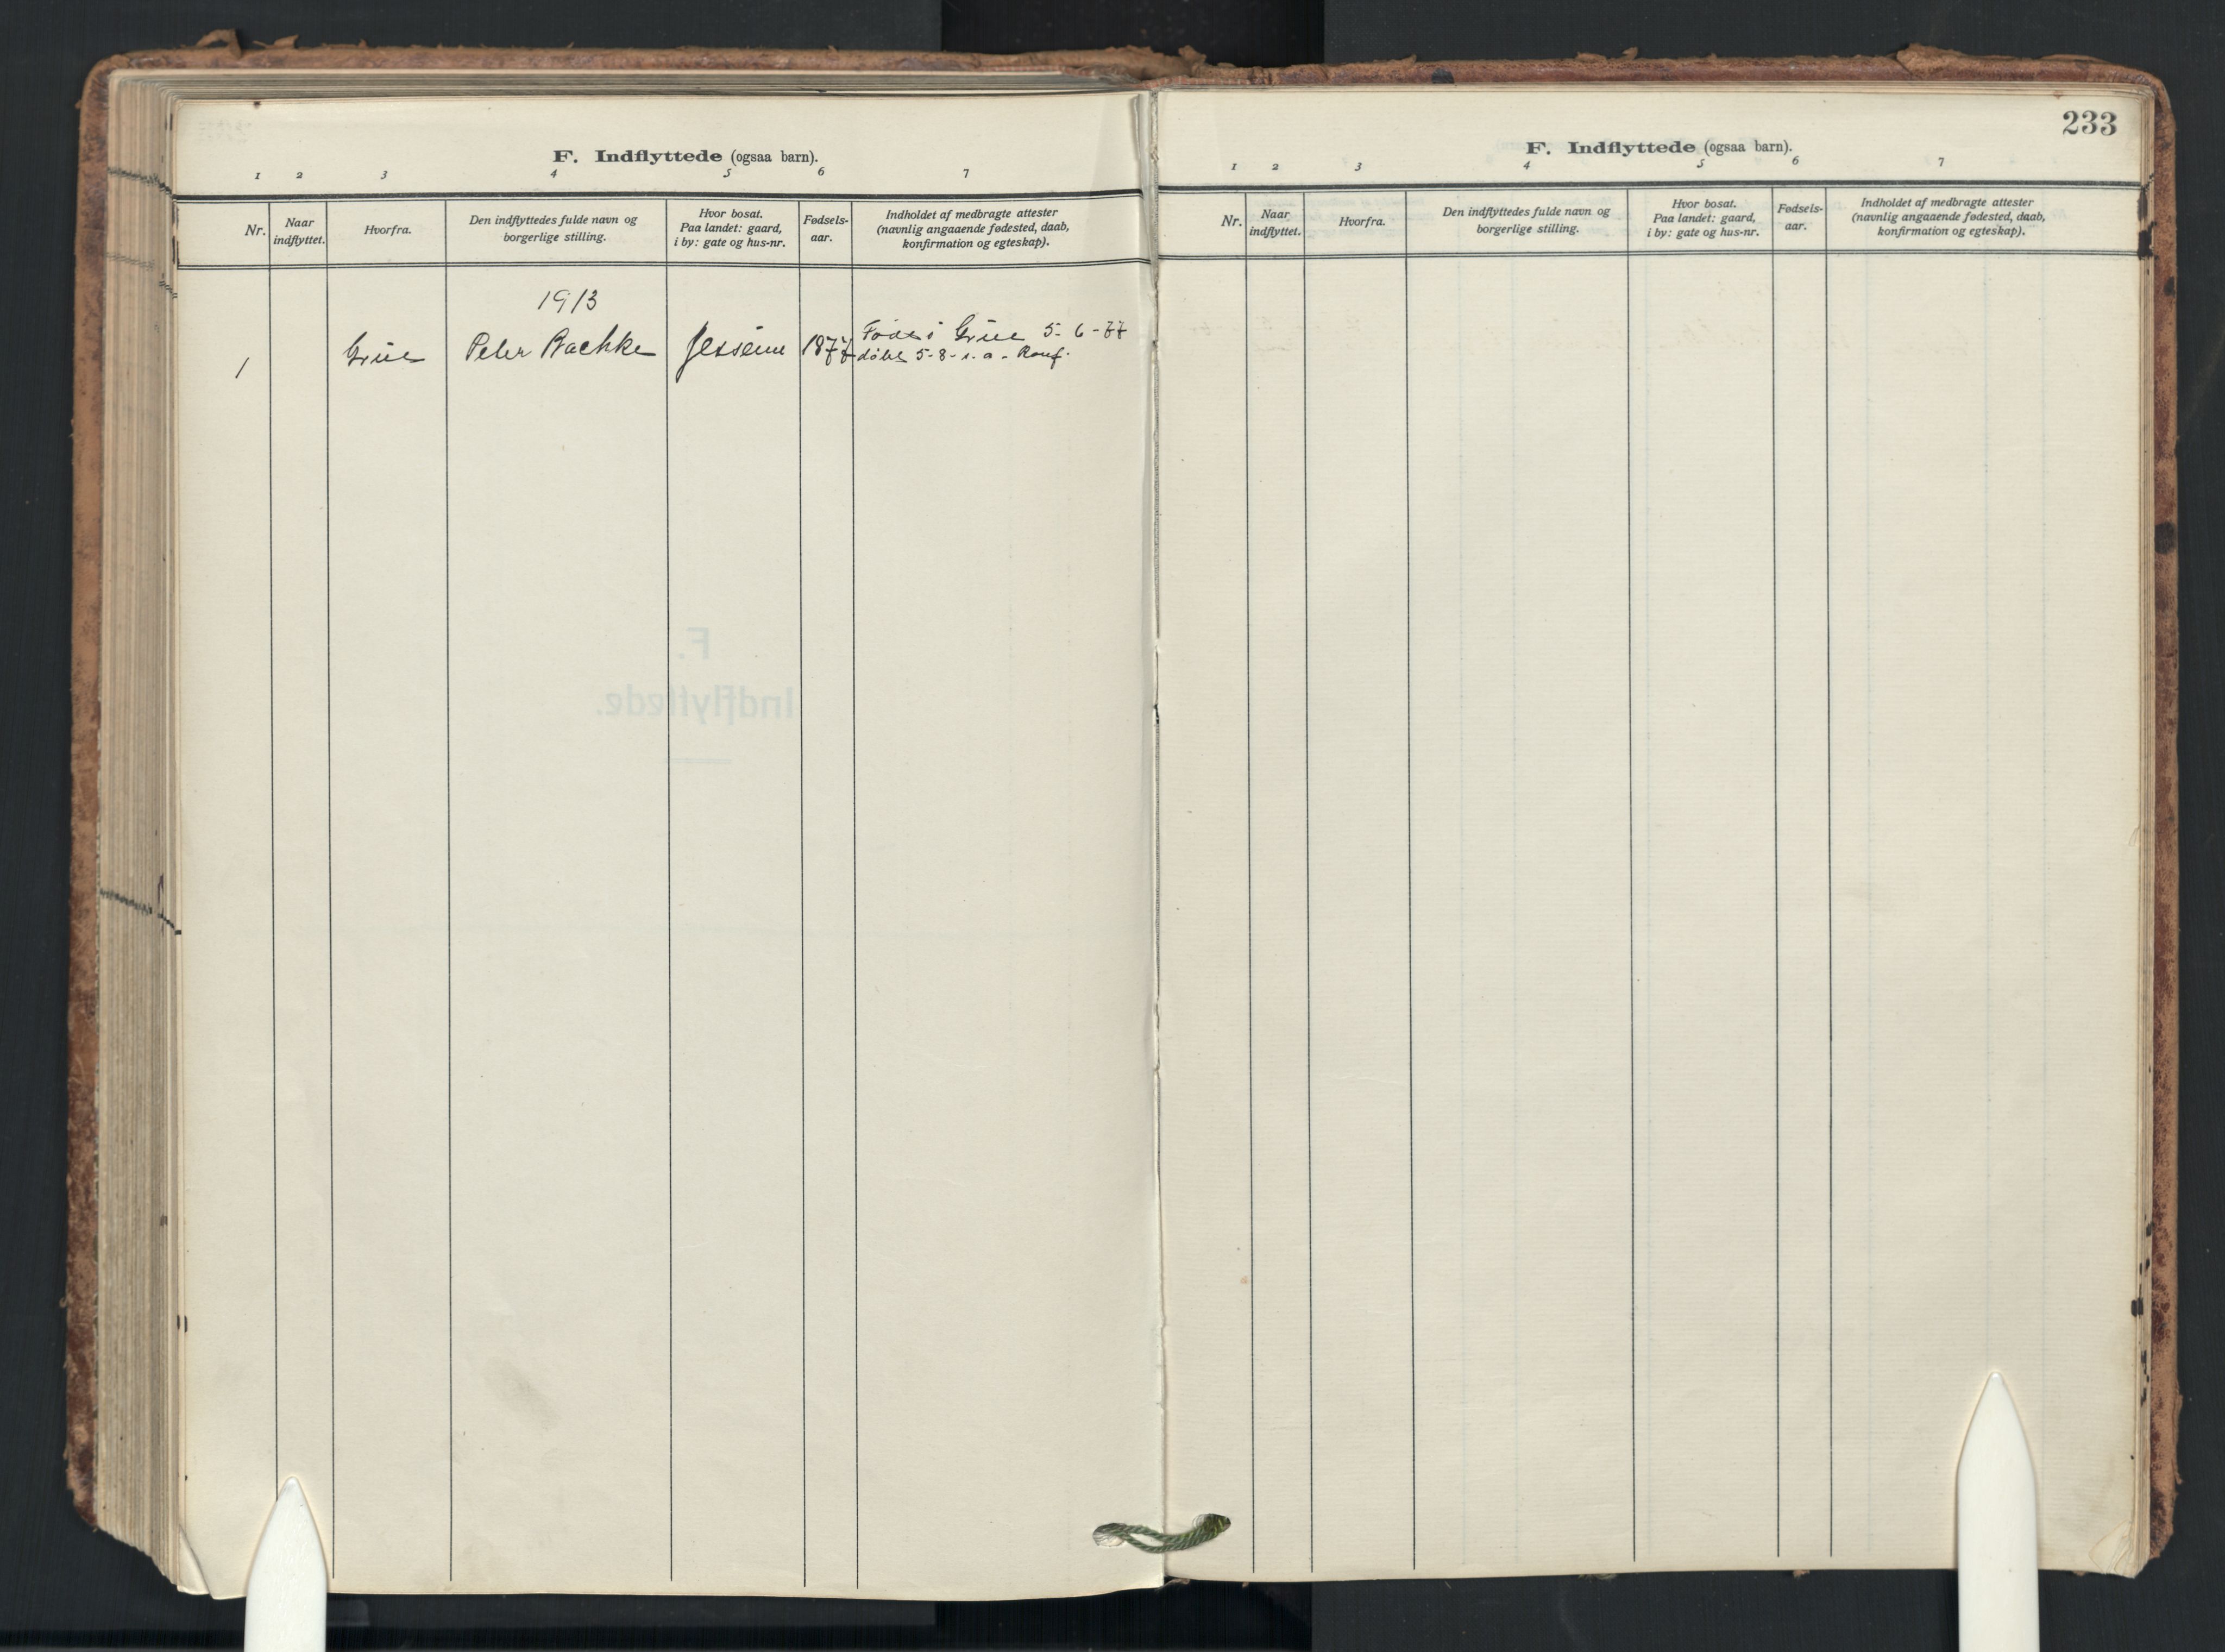 F. Indflyttede (ogsaa barn).
1 2 3 4 5 6 7
Nr.
Naar
indflyttet.
Hvorfra.
Den indflyttedes fulde navn og
borgerlige stilling.
Hvor bosat.
Paa landet: gaard,
i by: gate og hus-nr.
Fødsels-
aar.
Indholdet af medbragte attester
(navnlig angaaende fødested, daab,
konfirmation og egteskap).
1913
1 Grue Peter Bachke 1877
Født i Grue 5-6-77
døbt 5-8-s.a. Konf.
F.
Indflyttede.
233
F. Indflyttede (ogsaa barn).
1 2 3 4 5 6 7
Nr.
Naar
indflyttet.
Hvorfra.
Den indflyttedes fulde navn og
borgerlige stilling.
Hvor bosat.
Paa landet: gaard,
i by: gate og hus-nr.
Fødsels-
aar.
Indholdet af medbragte attester
(navnlig angaaende fødested, daab,
konfirmation og egteskap).